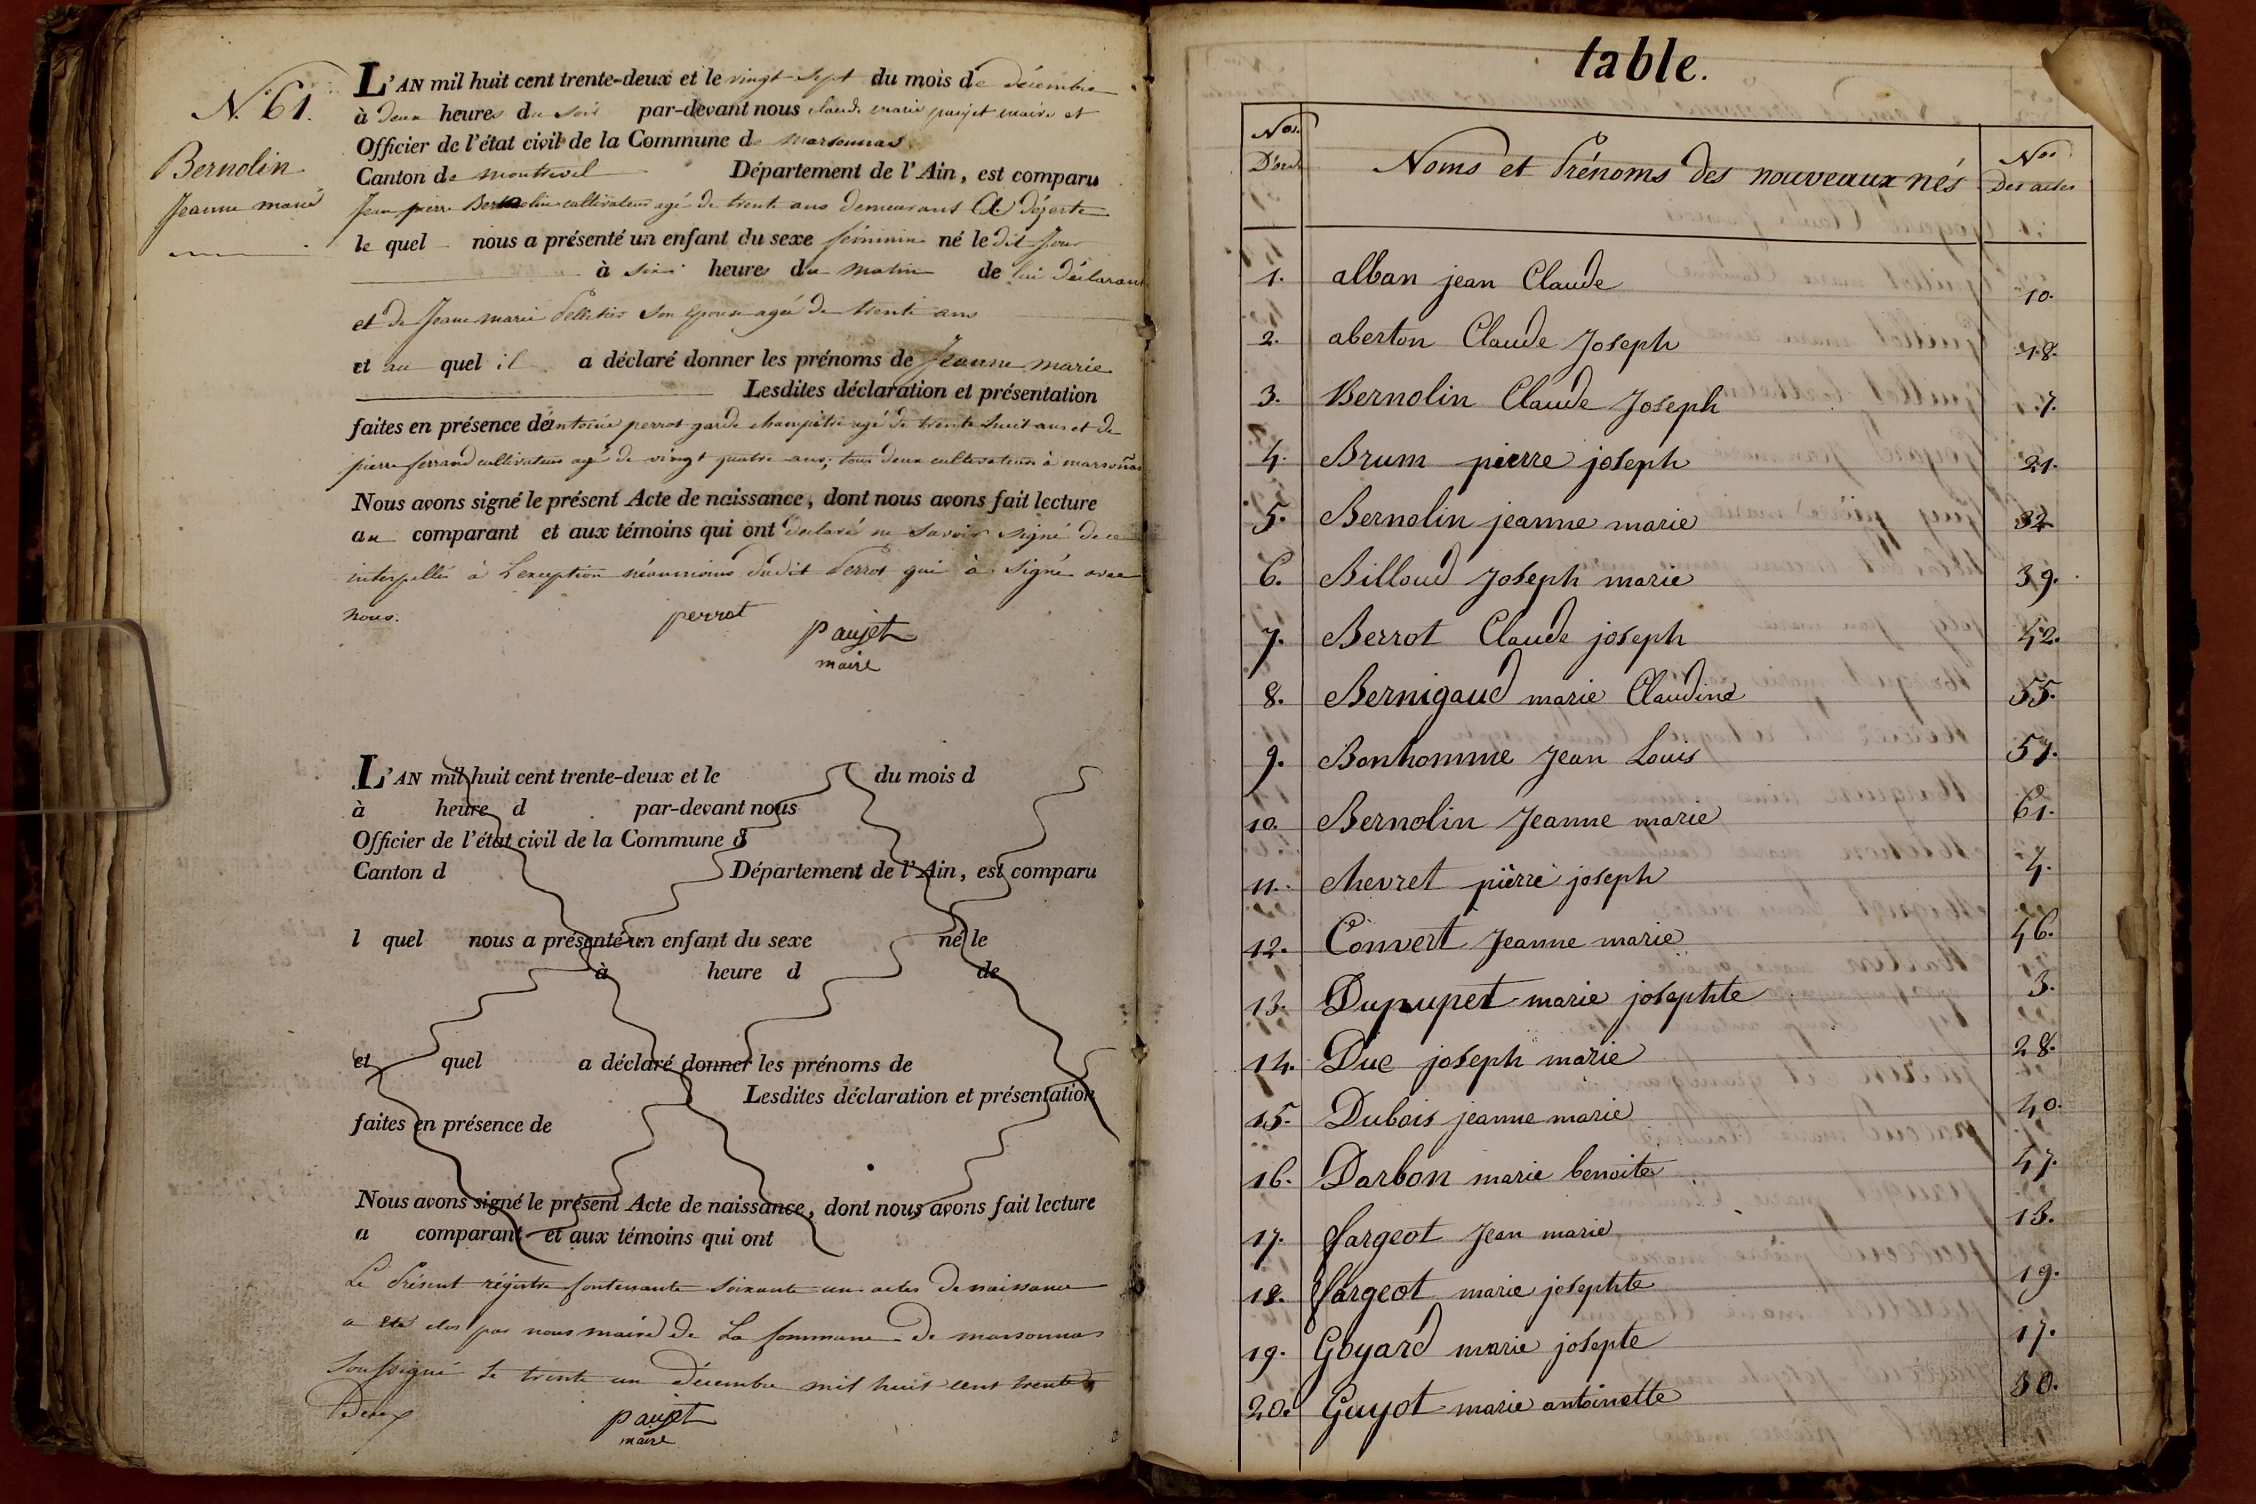 N.° 61.
Bernolin
Jeanne marie
L'AN mil huit cent trente-deux et le vingt sept du mois de décembre
à deux heures du soir par-devant nous Claude marie paujet maire et
Officier de l'état civil de la Commune de marsonnas
Canton de montrevel Département de l'Ain, est comparu
Jean pierre Bernolin cultivateur agé de trente ans demeurant a déserte
le quel nous a présenté un enfant du sexe féminin né le dit jour
à six heures du matin de lui déclarant
et de Jeanne marie Pelletier son épouse agée de trente ans
et au quel il a déclaré donner les prénoms de Jeanne marie
Lesdites déclaration et présentation
faites en présence de antoine perrot garde champêtre agé de trente huit ans et de
pierre ferrand cultivateur agé de vingt quatre ans; tous deux cultivateurs à marsonnas
Nous avons signé le présent Acte de naissance, dont nous avons fait lecture
au comparant et aux témoins qui ont déclaré ne savoir signé de ce
interpellés à l'exception néanmoins dudit Perrot qui à signé avec
nous.
perrot
paujet
maire
L'AN mil huit cent trente-deux et le du mois d
à heure d par-devant nous
Officier de l'état civil de la Commune d
Canton d Département de l'Ain, est comparu
l quel nous a présenté un enfant du sexe né le
à heure d de
et quel a déclaré donner les prénoms de
Lesdites déclaration et présentation
faites en présence de
Nous avons signé le présent Acte de naissance, dont nous avons fait lecture
a comparant et aux témoins qui ont
Le Présent régistre contenante soixante un actes de naissance
a été clos par nous maire de La Commune de marsonnas
Soussigné le trente un décembre mil huit cent trente
Deux
paujet
maire
table.
Nos. D'ord. Noms et Prénoms des nouveaux nés Nos Des actes
1. alban jean Claude 10.
2. aberton Claude Joseph 48.
3. Bernolin Claude Joseph 7.
4. Brum pierre joseph 21.
5. Bernolin jeanne marie 32
6. Billoud Joseph marie 39.
7. Berrot Claude joseph 42.
8. Bernigaud marie Claudine 55.
9. Bonhomme Jean Louis 57.
10. Bernolin Jeanne marie 61.
11. Chevret pierre joseph 4.
12. Convert Jeanne marie 46.
13. Dupupet marie josephte 3.
14. Duc joseph marie 28.
15. Dubois jeanne marie 40.
16. Darbon marie benoite 47.
17. fargeot Jean marie 13.
18. fargeot marie josephte 19.
19. Goyard marie josepte 17.
20. Guyot marie antoinette 30.